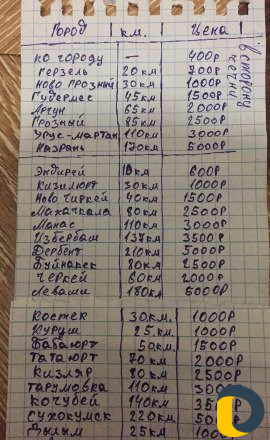 Город км. Цена
по городу — 400р
Герзель 20км 700р
Ново Грозный 30км 1000р
Губермес 45км 1500р
Аргун 65км 2000р
Грозный 85км 2500р
Урус-Мартан 110км 3000р
Назрань 170км 5000р
в сторону Чечни
Эндирей 10км 600р
Кизилюрт 30км 1000р
Ново Чиркей 40км 1500р
Махачкала 80км 2500р
Манас 110км 3000р
Избербаш 137км 3500р
Дербент 210км 5000р
Буйнакск 80км 2500р
Черкей 60км 2000р
Леваши 180км 5000р
Костек 30км. 1000р
Куруш 25км. 1000р
Бабаюрт 50км. 1500р
Татаюрт 70км 2000р
Кизляр 80км 2500
Тарумовка 110км
Кочубей 140км
Сухокумск 220км
Дылым 25км